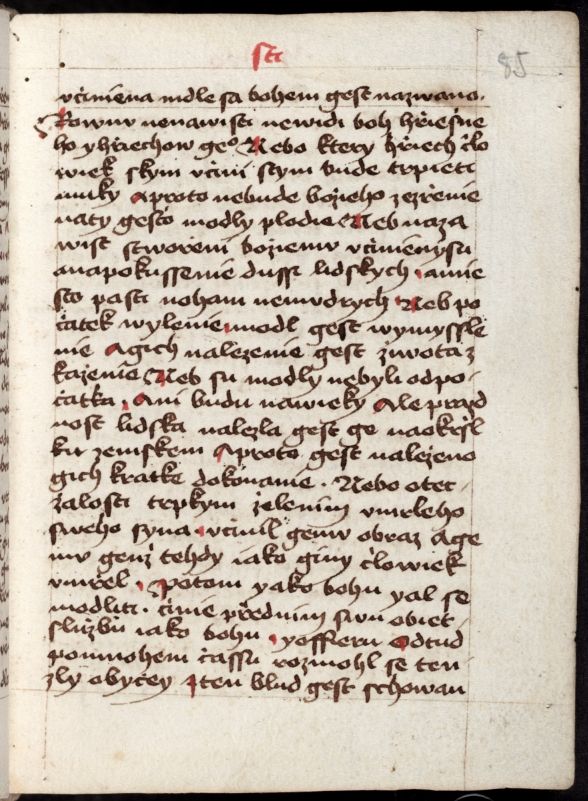 sti
85
vcziniena mdle sa bohem gest nazwano.
Rownu nenawisti newidi boh hrziesne
ho y hrziechow geo Nebo ktery hrziech czlo
wiek skym vczini stym bude trpieti
muky Aproto nebude bozieho zezrzenie
naty gesto modly plodie Neb naza
wist stworzeni boziemu vczinieny su
anapokussenie dussi lidskych amie
sto pasti noham nemudrych Neb po
czatek wylenie modl gest wymyssle
nie Agich nalezenie gest ziwota z
kazenie Neb su modly nebyli odpo
czatka. Ani budu nawieky Ale prazd
nost lidska nalezla gest ge naokrsl
ku zemskem Aproto gest nalezeno
gich kratke dokonanie. Nebo otecz
zalosti trpkym zelenim vmrleho
sweho syna vczinil gemu obraz Age
mu genz tehdy iako giny czlowiek
vmrzel. Potom yako bohu yal se
modliti. czinie przednim swu obiet
sluzbu iako bohu yofferu Odtud
pomnohem czassu rozmohl se ten
zly obyczey Iten blud gest schowan